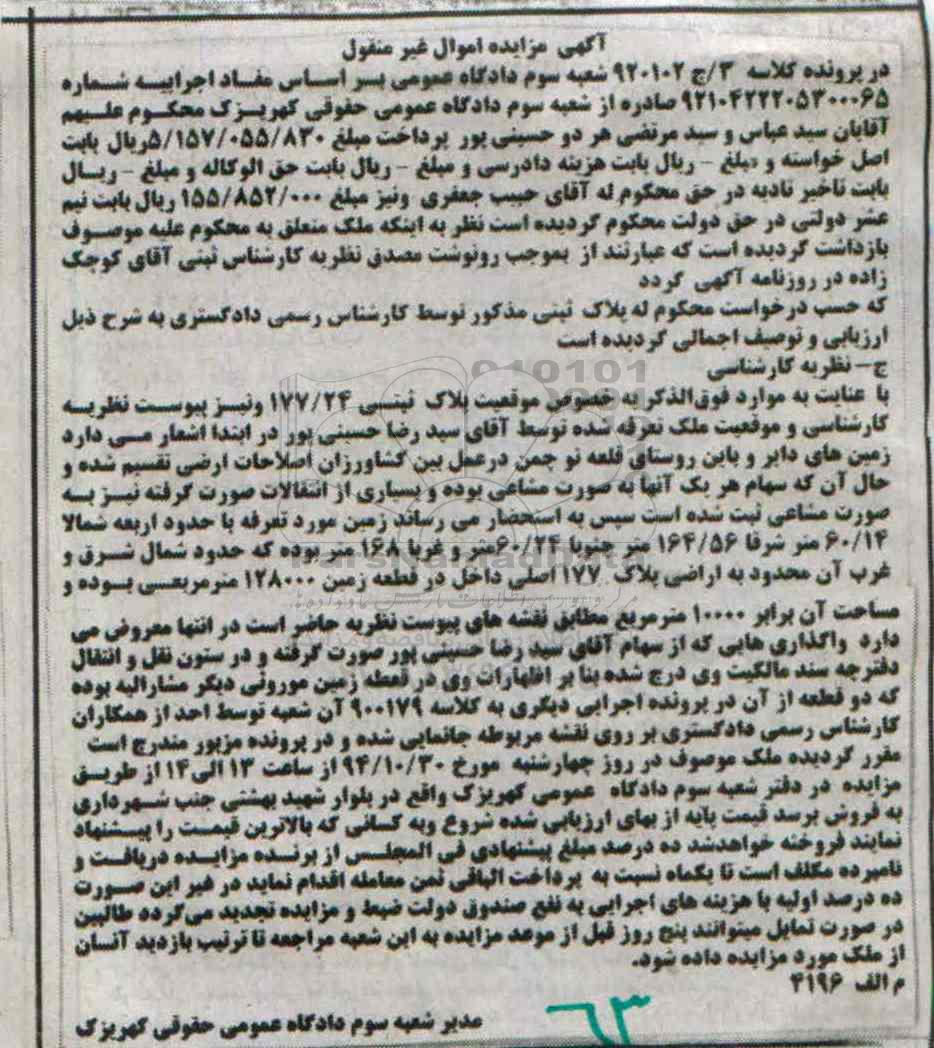 آگهی مزایده اموال غیر منقول
در پرونده کلاسه ۳/ج ۹۲۰۱۰۲ شعبه سوم دادگاه عمومی بر اساس مفاد اجراییه شماره
۹۲۱۰۴۲۲۲۰۵۳۰۰۰۶۵ صادره از شعبه سوم دادگاه عمومی حقوقی کهریزک محکوم علیهم
آقایان سید عباس و سید مرتضی هر دو حسینی پور پرداخت مبلغ ۵/۱۵۷/۰۵۵/۸۳۰ریال بابت
اصل خواسته و مبلغ – ریال بابت هزینه دادرسی و مبلغ – ریال بابت حق الوکاله و مبلغ – ریال
بابت تاخیر تادیه در حق محکوم له آقای حبیب جعفری ونیز مبلغ ۱۵۵/۸۵۲/۰۰۰ ریال بابت نیم
عشر دولتی در حق دولت محکوم گردیده است نظر به اینکه ملک متعلق به محکوم علیه موصوف
بازداشت گردیده است که عبارتند از بموجب رونوشت مصدق نظریه کارشناس ثبتی آقای کوچک
زاده در روزنامه آگهی گردد
که حسب درخواست محکوم له پلاک ثبتی مذکور توسط کارشناس رسمی دادگستری به شرح ذیل
ارزیابی و توصیف اجمالی گردیده است
ج– نظریه کارشناسی
با عنایت به موارد فوق الذکر به خصوص موقعیت پلاک ثبتی ۱۷۷/۲۴ ونیز پیوست نظریه
کارشناسی و موقعیت ملک تعرفه شده توسط آقای سید رضا حسینی پور در ابتدا اشعار می دارد
زمین های دایر و باین روستای قلعه نو چمن درعمل بین کشاورزان اصلاحات ارضی تقسیم شده و
حال آن که سهام هر یک آنها به صورت مشاعی بوده و بسیاری از انتقالات صورت گرفته نیز به
صورت مشاعی ثبت شده است سپس به استحضار می رساند زمین مورد تعرفه با حدود اربعه شمالا
۶۰/۱۴ متر شرقا ۱۶۴/۵۶ متر جنوبا ۶۰/۲۴متر و غربا ۱۶۸ متر بوده که حدود شمال شرق و
غرب آن محدود به اراضی پلاک ۱۷۷ اصلی داخل در قطعه زمین ۱۲۸۰۰۰ مترمربعی بوده و
مساحت آن برابر ۱۰۰۰۰ مترمربع مطابق نقشه های پیوست نظریه حاضر است در انتها معروض می
دارد واگذاری هایی که از سهام آقای سید رضا حسینی پور صورت گرفته و در ستون نقل و انتقال
دفترچه سند مالکیت وی درج شده بنا بر اظهارات وی در قطعه زمین موروثی دیگر مشارالیه بوده
که دو قطعه از آن در پرونده اجرایی دیگری به کلاسه ۹۰۰۱۷۹ آن شعبه توسط احد از همکاران
کارشناس رسمی دادگستری بر روی نقشه مربوطه جانمایی شده و در پرونده مزبور مندرج است
مقرر گردیده ملک موصوف در روز چهارشنبه مورخ ۹۴/۱۰/۳۰ از ساعت ۱۳ الی ۱۴ از طریق
مزایده در دفتر شعبه سوم دادگاه عمومی کهریزک واقع در بلوار شهید بهشتی جنب شهرداری
به فروش برسد قیمت پایه از بهای ارزیابی شده شروع وبه کسانی که بالاترین قیمت را پیشنهاد
نمایند فروخته خواهدشد ده درصد مبلغ پیشنهادی فی المجلس از برنده مزایده دریافت و
نامبرده مکلف است تا یکماه نسبت به پرداخت الباقی ثمن معامله اقدام نماید در غیر این صورت
ده درصد اولیه با هزینه های اجرایی به نفع صندوق دولت ضبط و مزایده تجدید می گرده طالبین
در صورت تمایل میتوانند پنج روز قبل از موعد مزایده به این شعبه مراجعه تا ترتیب بازدید آنسان
از ملک مورد مزایده داده شود.
م الف ۴۱۹۶
مدیر شعبه سوم دادگاه عمومی حقوقی کهریزک
۶۳